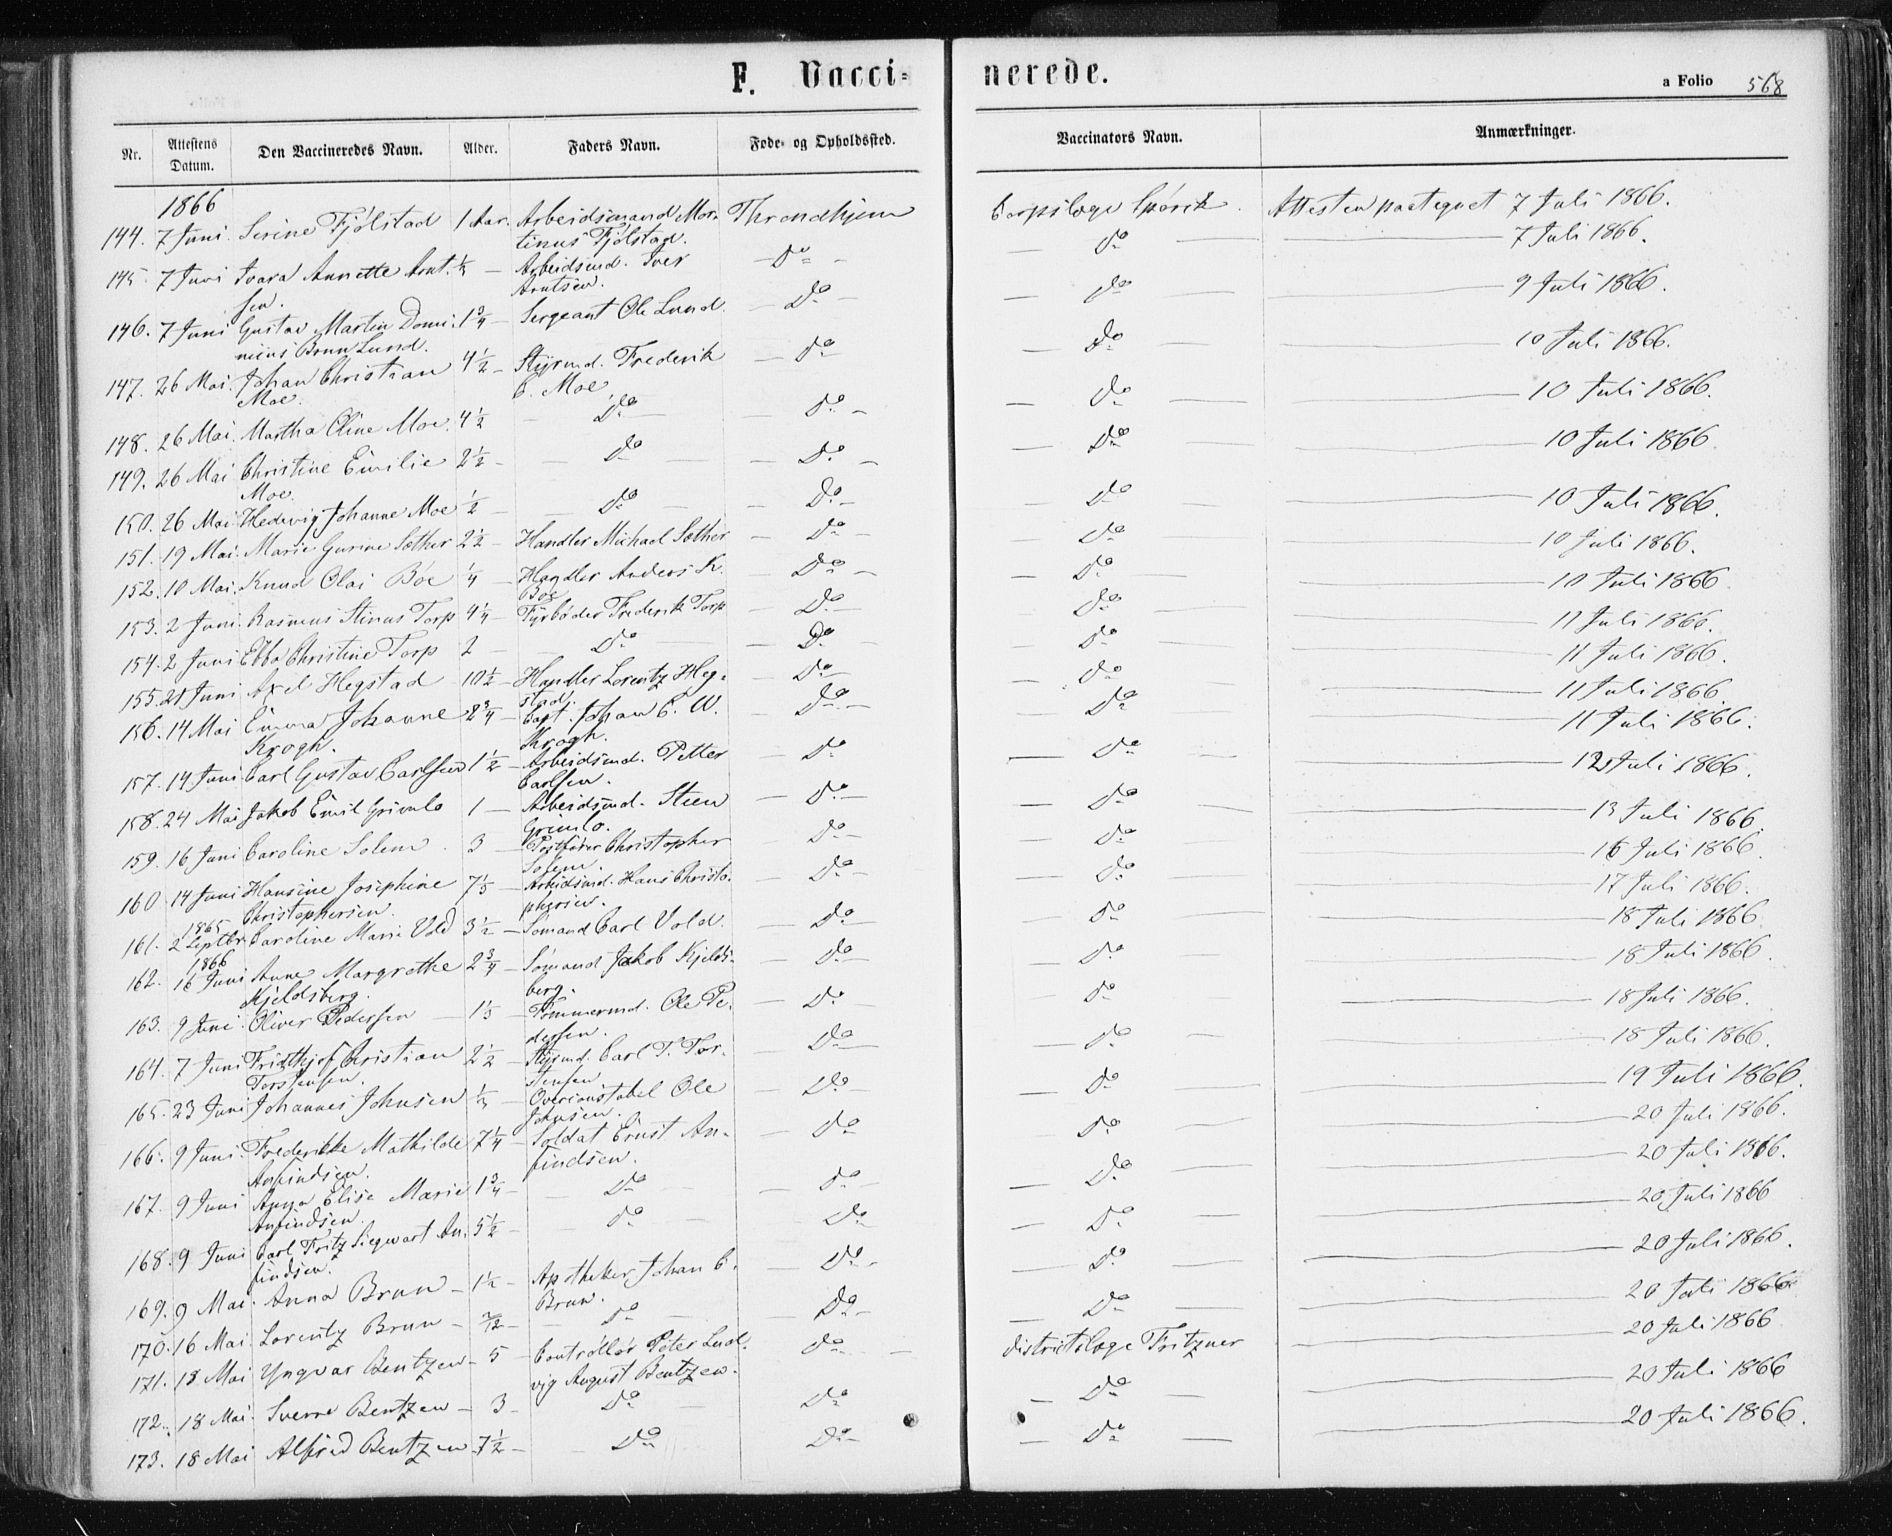 F. Vacci=nerede.
a Folio 568
Nr. Attestens Datum. Den Vaccineredes Navn. Alder. Faders Navn. Føde- og Opholdssted. Vaccinators Navn. Anmærkninger.
1866
144. 7 Juni Serine Fjölstad 1 Aar. Arbeidsmand Mor- Throndhjem Corpslæge Attesten paategnet 7 Juli 1866.
tinus Fjölstad.
145. 7 Juni Ivara Annette Arnt- — Arbeidsmd. Iver — Do — — Do — 7 Juli 1866.
sen. Arntsen.
146. 7 Juni Gustav Martin Domi- 1 3/4 — Sergeant Ole Lund. — Do — — Do — 9 Juli 1866.
nicus Brun Lund.
147. 26 Mai. Johan Christian 4 1/2 — Styrmd. Frederik — Do — — Do — 10 Juli 1866.
Moe. C. Moe
148. 26 Mai. Martha Oline Moe. 4 1/2 — Do — — Do — — Do — 10 Juli 1866.
149. 26 Mai Christine Emilie 2 1/2 — Do — — Do — — Do — 10 Juli 1866
Moe.
150. 26 Mai Hedevig Johanne Moe 1/2 — Do — — Do — — Do — 10 Juli 1866.
151. 19 Mai. Marie Gurine Sæther 2 1/2 — Handler Michael Sæther — Do — — Do — 10 Juli 1866.
152. 10 Mai. Knud Olai Böe 1/4 — Handler Anders K. — Do — — Do — 10 Juli 1866
Böe
153. 2 Juni. Rasmus Stinus Torp 4 1/4 — Fyrböder Frederik Torp — Do — — Do — 11 Juli 1866.
154. 2 Juni Ebba Christine Torp 2 — Do — — Do — — Do — 11 Juli 1866.
155. 21 Juni Axel Hegstad 10 1/2 — Handler Lorentz Heg- — Do — — Do — 11 Juli 1866.
stad.
156. 14 Mai Emma Johanne 2 3/4 — Capt. Johan C. W. — Do — — Do — 11 Juli 1866.
Krogh. Krogh.
157. 14 Juni Carl Gustav Carlsen 1 1/2 — Arbeidsmd. Petter — Do — Do — 12 Juli 1866.
Carlsen.
158. 24 Mai Jakob Emil Grimlo 1 — Arbeidsmd. Steen — Do — — Do — 13 Juli 1866
Grimlo.
159. 16 Juni Caroline Solem. 3 — Postfører Christopher — Do — — Do — 16 Juli 1866
Solem.
160 14 Juni Hansine Josephine 7 1/3 — Arbeidsmd. Hans Christo- — Do — — Do — 17 Juli 1866.
Christophersen. phersen.
1865
161. 2 Septbr. Caroline Marie Vold 3 1/2 — Sömand Carl Vold. — Do — — Do — 18 Juli 1866
1866
162. 16 Juni Anne Margrethe 2 3/4 — Sömand Jakob Kjelds- — Do — — Do — 18 Juli 1866
Kjeldsberg. berg.
163. 9 Juni Oliver Pedersen — 1 1/3 — Tömmermd. Ole Pe- — Do — — Do — 18 Juli 1866.
dersen.
164. 7 Juni Fridthjof Christian 2 1/2 — Styrmd. Carl T. Tor- — Do — — Do — 18 Juli 1866.
Torstensen. stensen
165. 23 Juni Johannes Johnsen 1/3 — Overconstabel Ole — Do — — Do — 19 Juli 1866.
Johnsen.
166. 9 Juni. Frederikke Mathilde 7 1/4 — Soldat Ernst An- — Do — Do — 20 Juli 1866.
Anfindsen. findsen.
167. 9 Juni Anna Elise Marie 1 3/4 — Do — — Do — — Do — 20 Juli 1866.
Anfindsen.
168. 9 Juni Carl Fritz Siegwart An- 5 1/2 — Do — Do — — Do — 20 Juli 1866
findsen.
169. 9 Mai. Anna Brun — 1 1/2 — Apotheker Johan C. — Do — — Do — 20 Juli 1866.
Brun.
170. 16 Mai. Lorentz Brun — — Do — Do — — Do — 20 Juli 1866
171. 18 Mai Yngvar Bentzen — 5 Controllør Peter Lud- Do — districtslæge Fritzner — 20 Juli 1866
vig August Bentzen.
172. 18 Mai. Sverre Bentzen — 3 — Do — Do — Do — 20 Juli 1866
173. 18 Mai Alfred Bentzen 7 1/2 — Do Do — — Do — 20 Juli 1866.